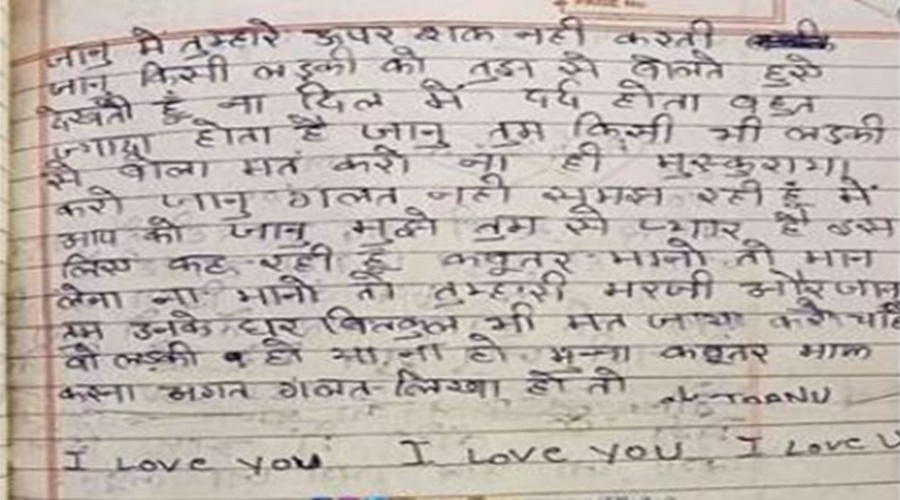 जानू मे तुम्हारे ऊपर शक नही करती
जानू किसी लडकी को तुझ से बोलते हुऐ
देखती हूँ ना दिल में दर्द होता बहुत
ज्यादा होता है जानू तुम किसी भी लडकी
से बोला मत करो ना ही मुस्कुराया
करो जानू गलत नही समझ रही हूँ में
आप को जानू मुझे तुम से प्यार है इस
लिए कह रही हूँ कबूतर मानो तो मान
लेना ना मानो तो तुम्हारी मरजी और जानू
तुम उनके घर बिलकुल भी मत जाया करो चाहे
वो लडकी हो या ना हो मुन्ना कबूतर माफ
करना अगत गलत लिखा हो तो
I Love you I Love you I Love